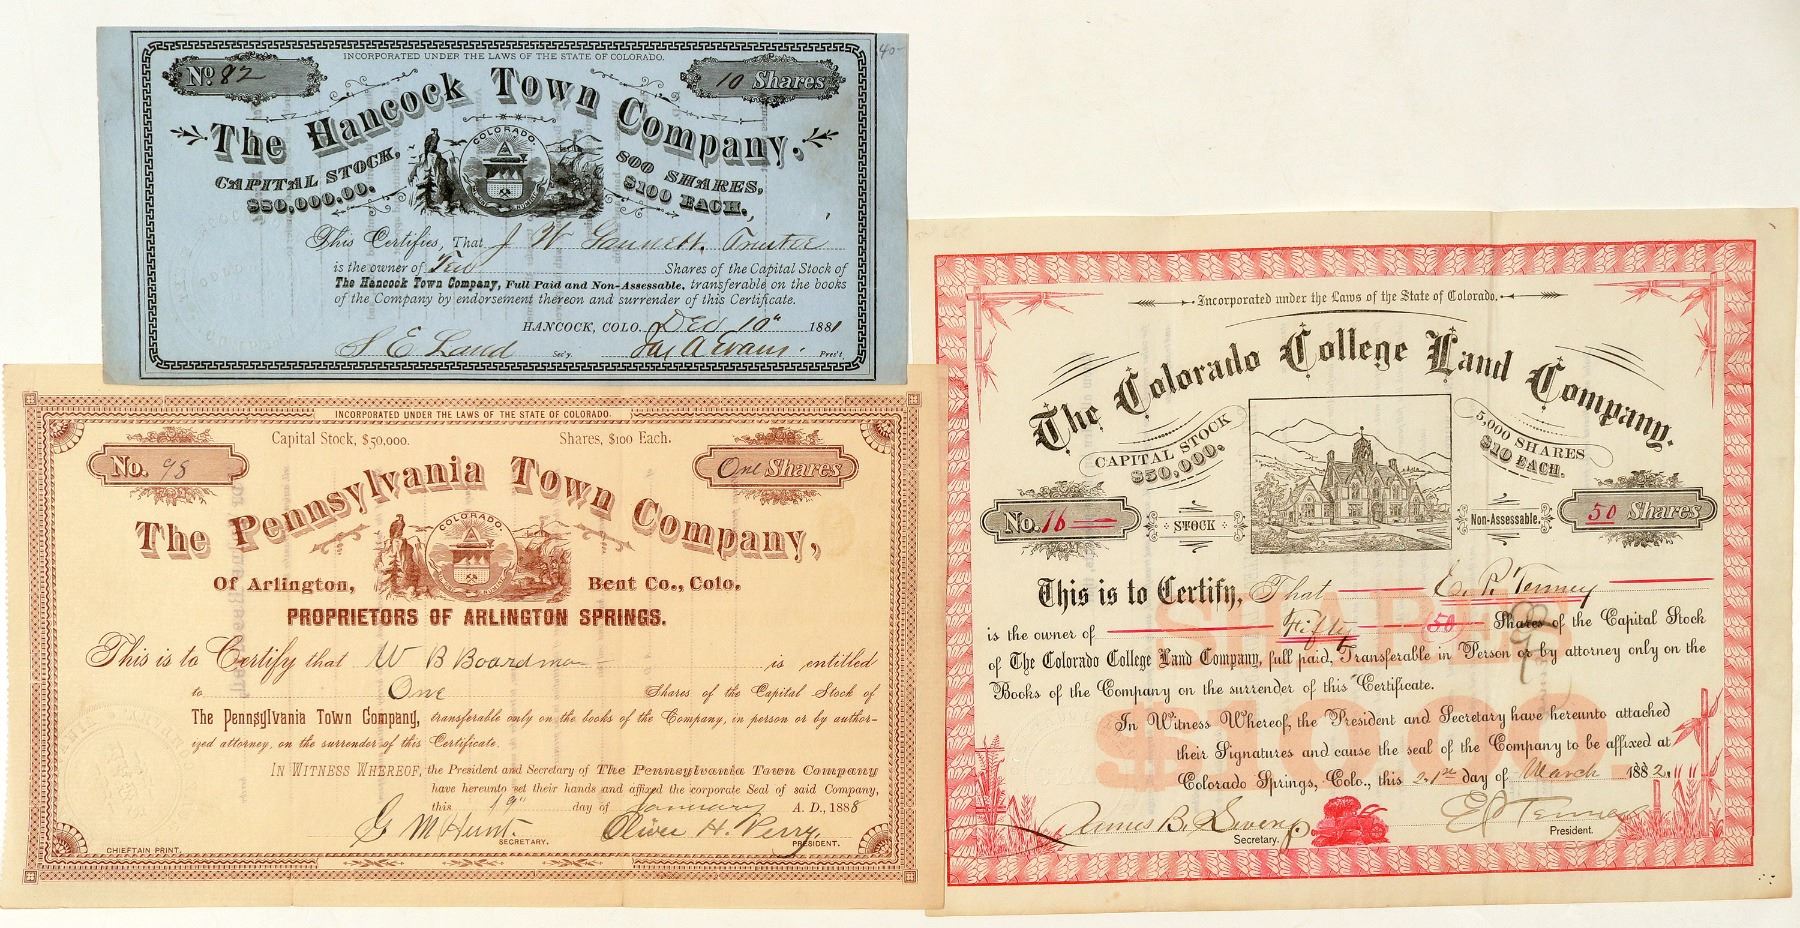 40-
INCORPORATED UNDER THE LAWS OF THE STATE OF COLORADO.
No. 82
10 Shares
The Hancock Town Company.
CAPITAL STOCK, $80,000.00.
COLORADO.
800 SHARES, $100 EACH.
This Certifies, That J W Gannett. Trustee
is the owner of Ten Shares of the Capital Stock of
The Hancock Town Company, Full Paid and Non-Assessable, transferable on the books
of the Company by endorsement thereon and surrender of this Certificate.
HANCOCK, COLO. Dec 10th 1881
S E Land Sec'y. Jas A Evans. Pres't.
INCORPORATED UNDER THE LAWS OF THE STATE OF COLORADO.
Capital Stock, $50,000. Shares, $100 Each.
No. 98
One Shares
The Pennsylvania Town Company,
COLORADO.
Of Arlington, Bent Co., Colo.
PROPRIETORS OF ARLINGTON SPRINGS.
This is to Certify that W B Boardman is entitled
to One Shares of the Capital Stock of
The Pennsylvania Town Company, transferable only on the books of the Company, in person or by author-
ized attorney, on the surrender of this Certificate.
IN WITNESS WHEREOF, the President and Secretary of The Pennsylvania Town Company
have hereunto set their hands and affixed the corporate Seal of said Company,
this 19th day of January A. D., 1888
G M Hunt. SECRETARY. Oliver H. Perry. PRESIDENT.
CHIEFTAIN PRINT.
Incorporated under the Laws of the State of Colorado.
The Colorado College Land Company.
CAPITAL STOCK $50,000.
5,000 SHARES $10 EACH.
No. 16
STOCK
Non-Assessable.
50 Shares
This is to Certify, That E. P. Tenney
is the owner of Fifty 50 Shares of the Capital Stock
of The Colorado College Land Company, full paid, Transferable in Person or by attorney only on the
Books of the Company on the surrender of this Certificate.
SHARES
$10.00.
In Witness Whereof, the President and Secretary have hereunto attached
their Signatures and cause the seal of the Company to be affixed at
Colorado Springs, Colo., this 21st day of March 1882.
James B. Severy Secretary. E P Tenney President.